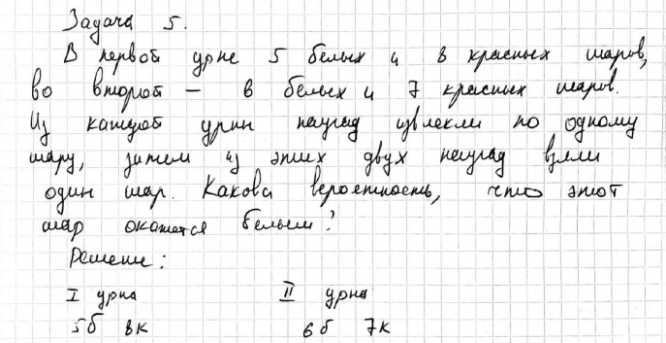 Задача 5.
В первой урне 5 белых и 8 красных шаров,
во второй — 6 белых и 7 красных шаров.
Из каждой урны наугад извлекли по одному
шару, затем из этих двух наугад взяли
один шар. Какова вероятность, что этот
шар окажется белым?
Решение:
I урна II урна
5б 8к 6б 7к